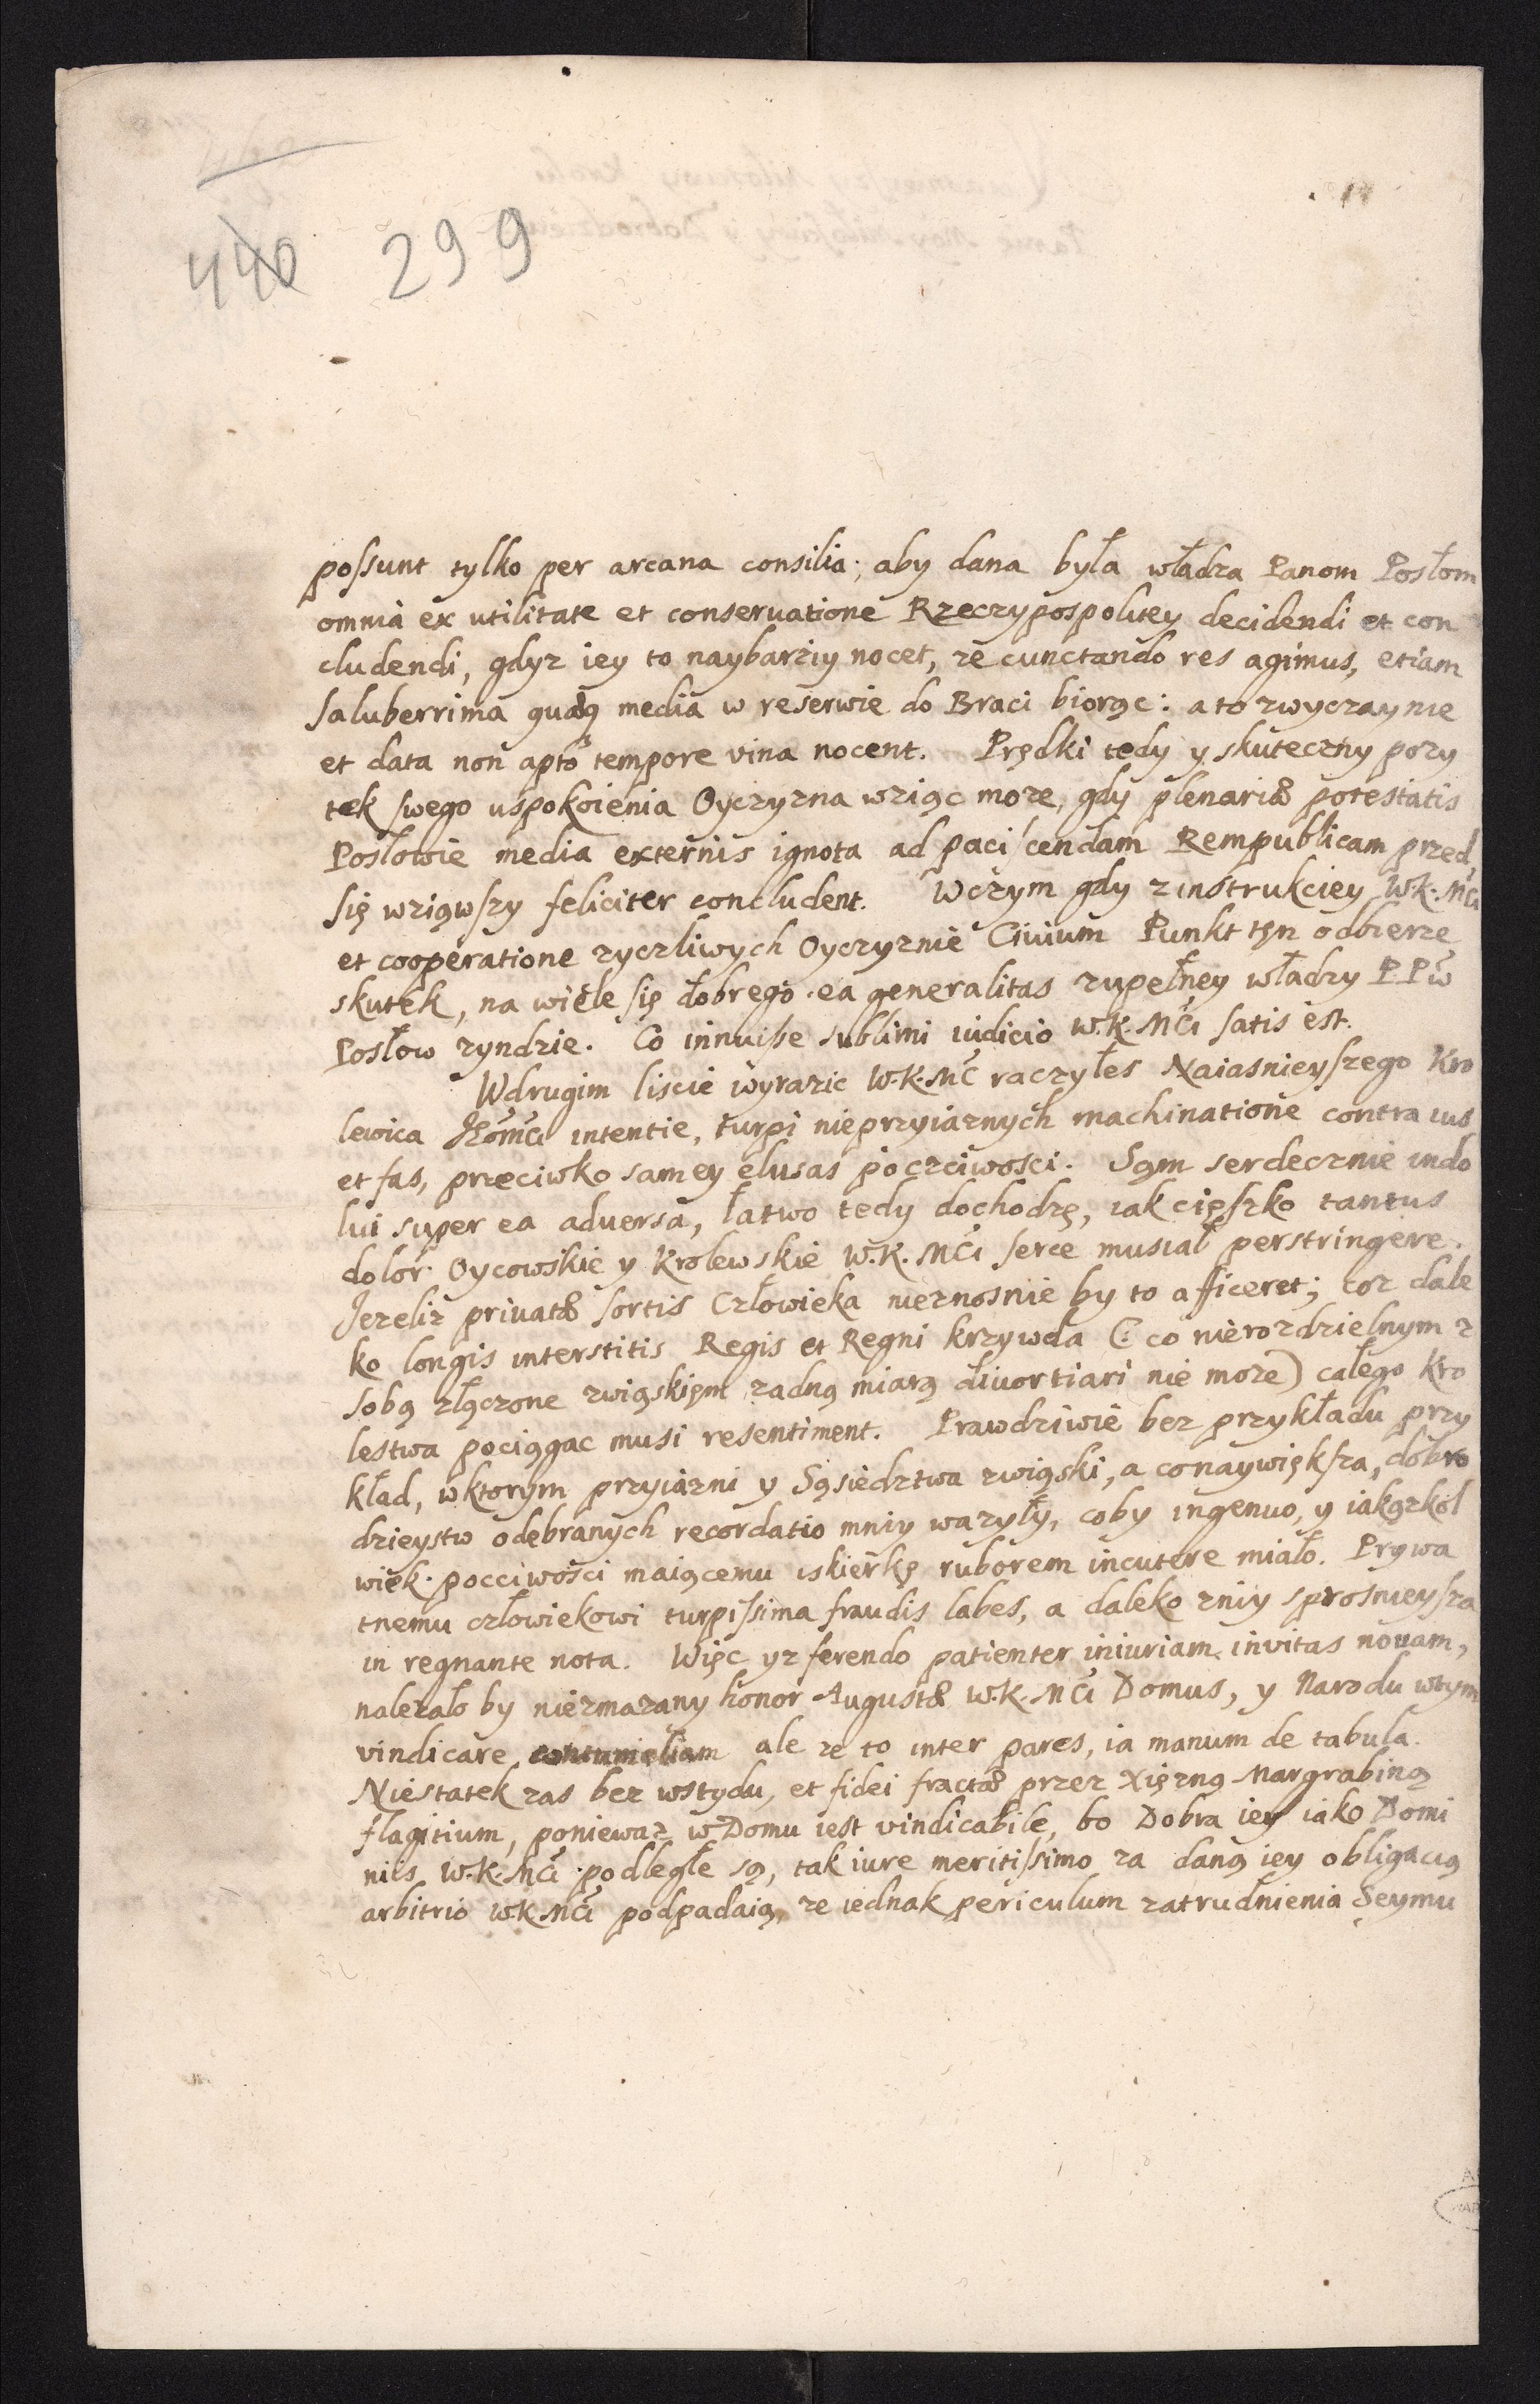 440 299
possunt tylko per arcana consilia; aby dana była władza Panom Posłom
omnia ex utilitate et conservatione Rzeczypospolitey decidendi et con
cludendi, gdyz iey to naybarziy nocet, ze cunctando res agimus, etiam
saluberrima quæq media w reserwie do Braci biorąc: a to zwyczaynie
et data non apto tempore vina nocent. Prędki tedy y skuteczny pozy
tek swego uspokoienia Oyczyzna wziąc moze, gdy plenariæ potestatis
Posłowie media externis ignota ad paciscendam Rempublicam przed
się wziąwszy feliciter concludent. Wczym gdy z instrukciey W.K.Mći
et cooperatione zyczliwych Oyczyznie Civium Punkt tęn odbierze
skutek, na wiele się dobrego ea generalitas zupełney władzy PPw
Posłow zyndzie. Co innuisse sublimi iudicio W.K.Mći satis est.
Wdrugim liscie wyrazic W.K.Mć raczyłes Naiasnieyszego Kro
lewica Jeomći intentie, turpi nieprzyiaznych machinatione contra ius
et fas, przeciwko samey elusas poczciwosci. Sąm serdecznie indo
lui super ea adversa, łatwo tedy dochodzę, iak cięszko tantus
dolor Oycowskie y Krolewskie W.K.Mći serce musiał perstringere.
Jezeliz privatæ sortis Człowieka nieznosnie by to afficeret; coz dale
ko longis interstitis Regis et Regni krzywda (: co nierozdzielnym z
sobą złączone związkięm zadną miarą divortiari nie moze) całego Kro
lestwa pociągac musi resentiment. Prawdziwie bez przykładu przy
kład, wktorym przyiazni y Sąsiedztwa związki, a conaywiększa, dobro
dzieystw odebranych recordatio mniy wazyły, coby ingenuo, y iakązkol
wiek pocciwosci maiącemu iskierkę ruborem incutere miało. Prywa
tnemu człowiekowi turpissima fraudis labes, a daleko zniy sprosnieysza
in regnante nota. Więc yz ferendo patienter iniuriam invitas novam,
nalezało by niezmazany honor Augustæ W.K.Mći Domus, y Narodu wtym
vindicare contumeliam ale ze to inter pares, ia manum de tabula.
Niestatek zas bez wstydu, et fidei fractæ przez Xięzną Margrabiną
flagitium, poniewaz w Domu iest vindicabile, bo Dobra iey iako Domi
niis W.K.Mći podległe są, tak iure meritissimo za daną iey obligacią
arbitrio W.K.Mći podpadaią, ze iednak periculum zatrudnienia Seymu